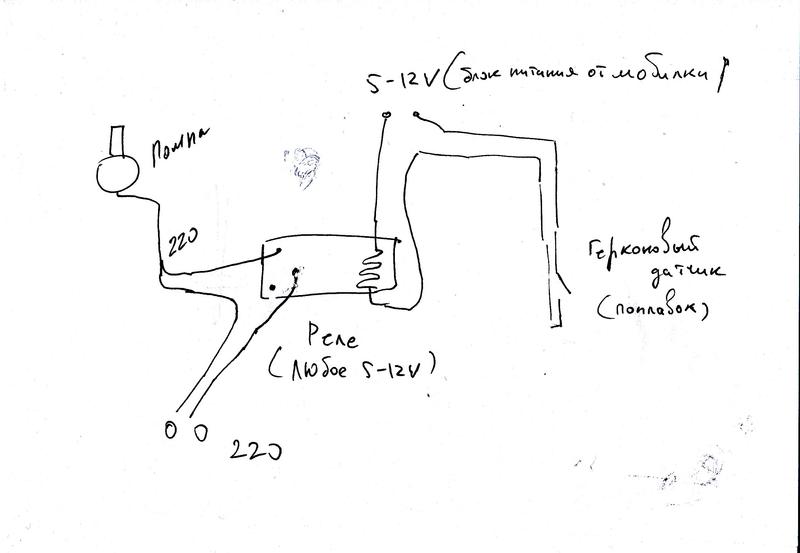 5-12V (блок питания от мобилки)
Помпа
220
Герконовый
датчик
(поплавок)
Реле
(любое 5-12V)
220